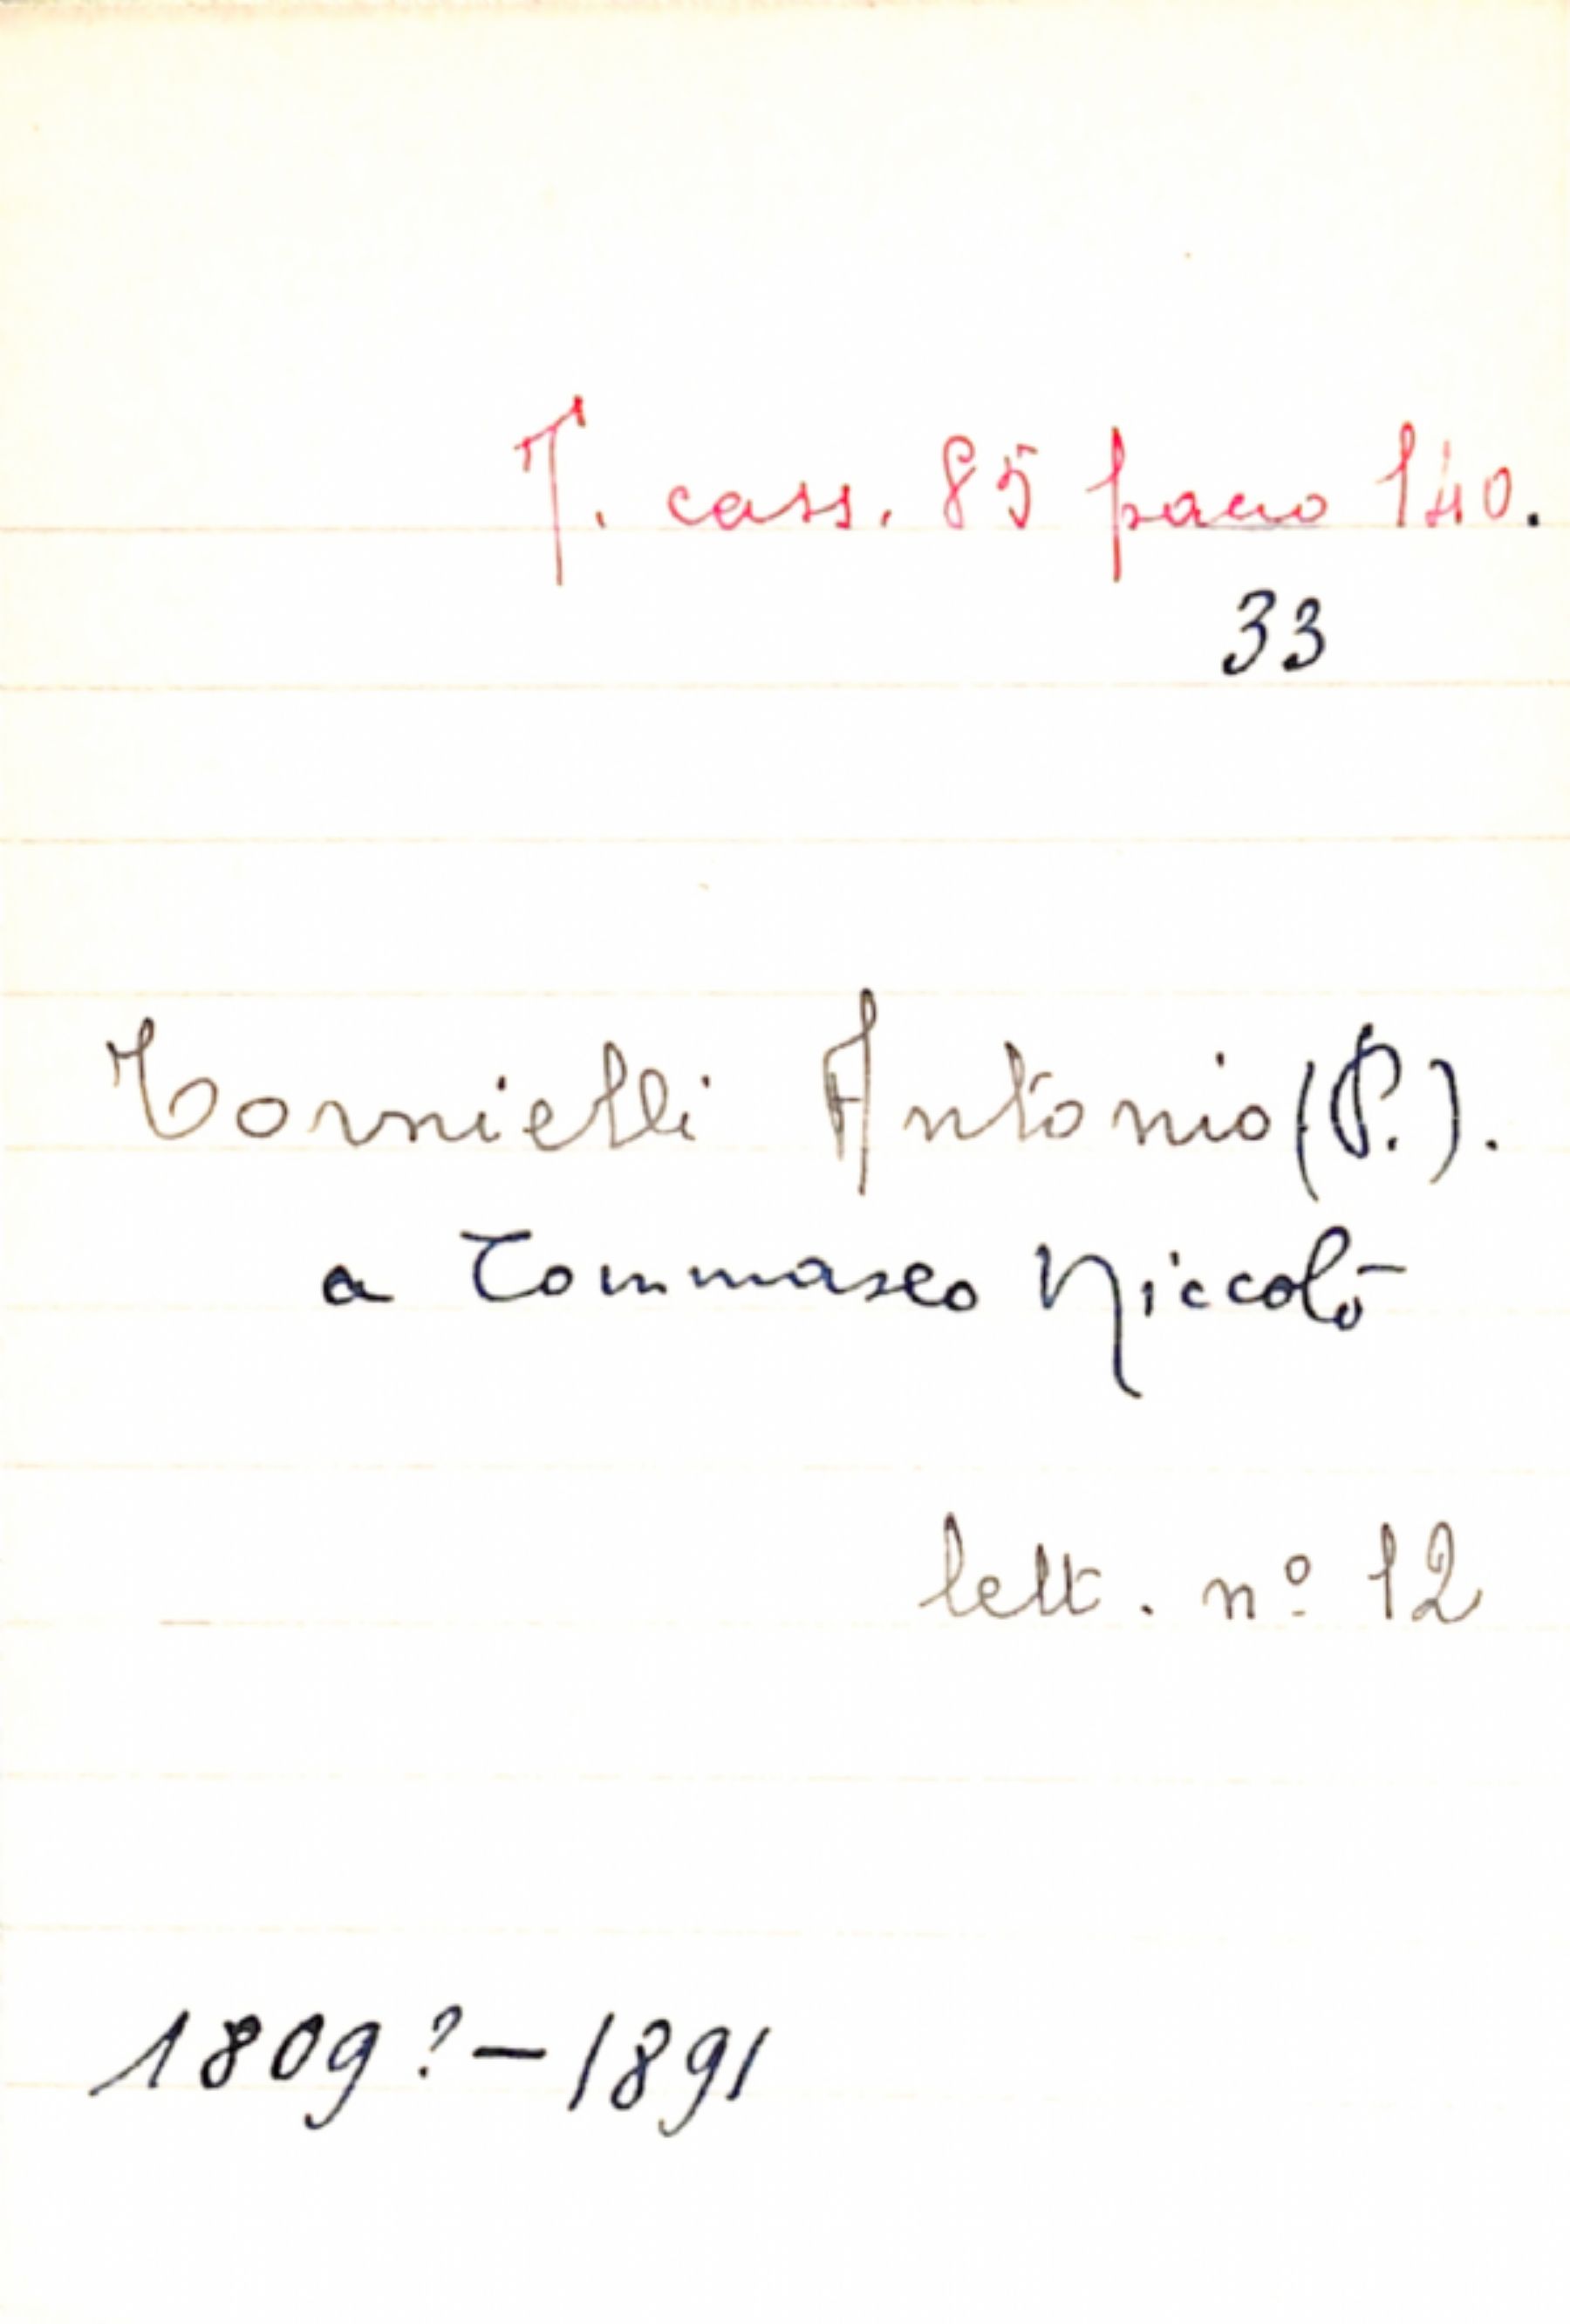 T. cass. 85 pacco 140.
33
Tornielli Antonio (P.).
a Tommaseo Niccolò
lett. nº 12
1809?-1891